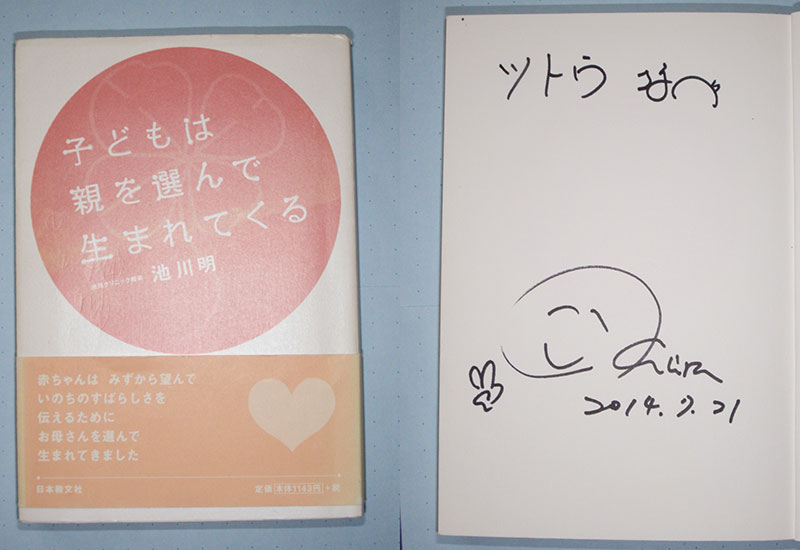 子どもは
親を選んで
生まれてくる
池川クリニック院長 池川明
赤ちゃんは みずから望んで
いのちのすばらしさを
伝えるために
お母さんを選んで
生まれてきました
日本教文社
定価 本体1143円 +税
ツトウ
2014.9.21